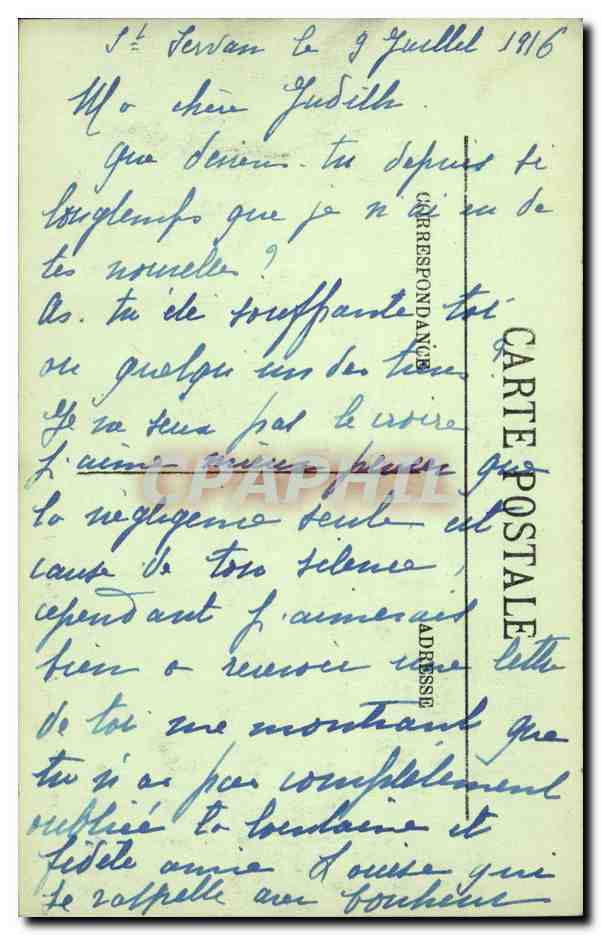 St Servan le 9 Juillet 1916
Ma chère Judith
que deviens-tu depuis si
longtemps que je n'ai eu de
tes nouvelles ?
As-tu été souffrante toi
ou quelqu'un des tiens ?
Je ne veux pas le croire
j'aime mieux penser que
la négligence seule est
cause de ton silence,
cependant j'aimerais
bien a recevoir une lettre
de toi me montrant que
tu n'as pas complètement
oubliée ta lointaine et
fidèle amie Louise qui
se rappelle avec bonheur
CORRESPONDANCE
ADRESSE
CARTE POSTALE
CPAPHIL